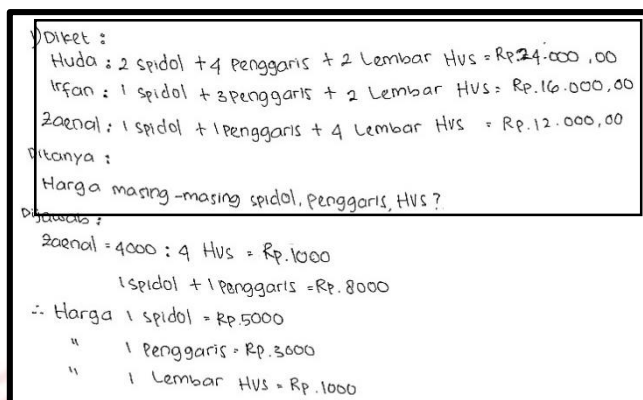 1) Diket :
Huda : 2 spidol + 4 penggaris + 2 Lembar HVS = Rp.24.000,00
Irfan : 1 spidol + 3 penggaris + 2 Lembar HVS = Rp.16.000,00
Zaenal : 1 spidol + 1 penggaris + 4 Lembar HVS = Rp.12.000,00
Ditanya :
Harga masing-masing spidol, penggaris, HVS?
Dijawab :
Zaenal = 4000 : 4 HVS = Rp.1000
1 spidol + 1 penggaris = Rp.8000
∴ Harga 1 spidol = Rp.5000
" 1 penggaris = Rp.3000
" 1 Lembar HVS = Rp.1000